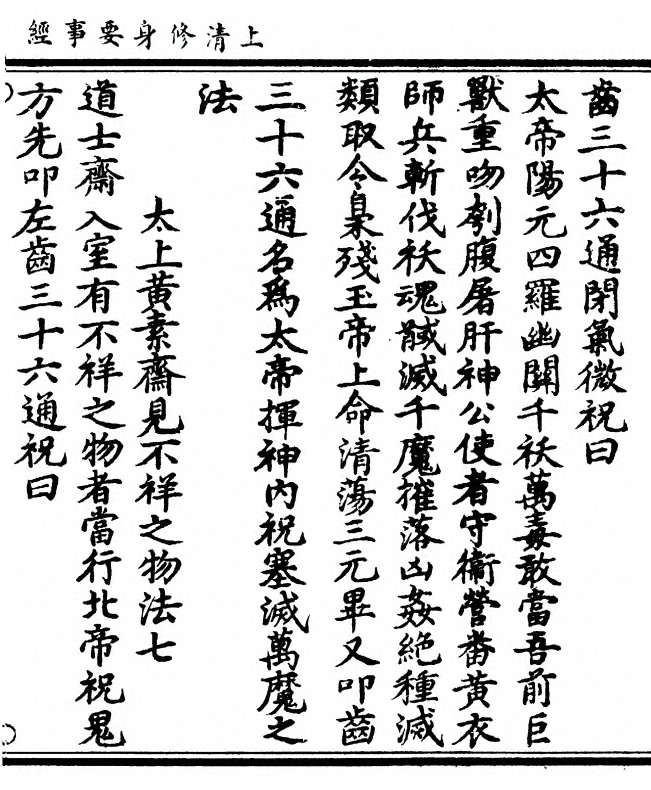 上清修身要事經
齒三十六通閉氣微祝曰
太帝陽元四羅幽關千袄萬毒敢當吾前巨
獸重吻刳腹屠肝神公使者守衞營番黃衣
師兵斬伐袄魂馘滅千魔摧落凶姦絶種滅
類取令梟殘玉帝上命清蕩三元畢又叩齒
三十六通名爲太帝揮神內祝塞滅萬魔之
法
太上黃素齋見不祥之物法七
道士齋入室有不祥之物者當行北帝祝鬼
方先叩左齒三十六通祝曰